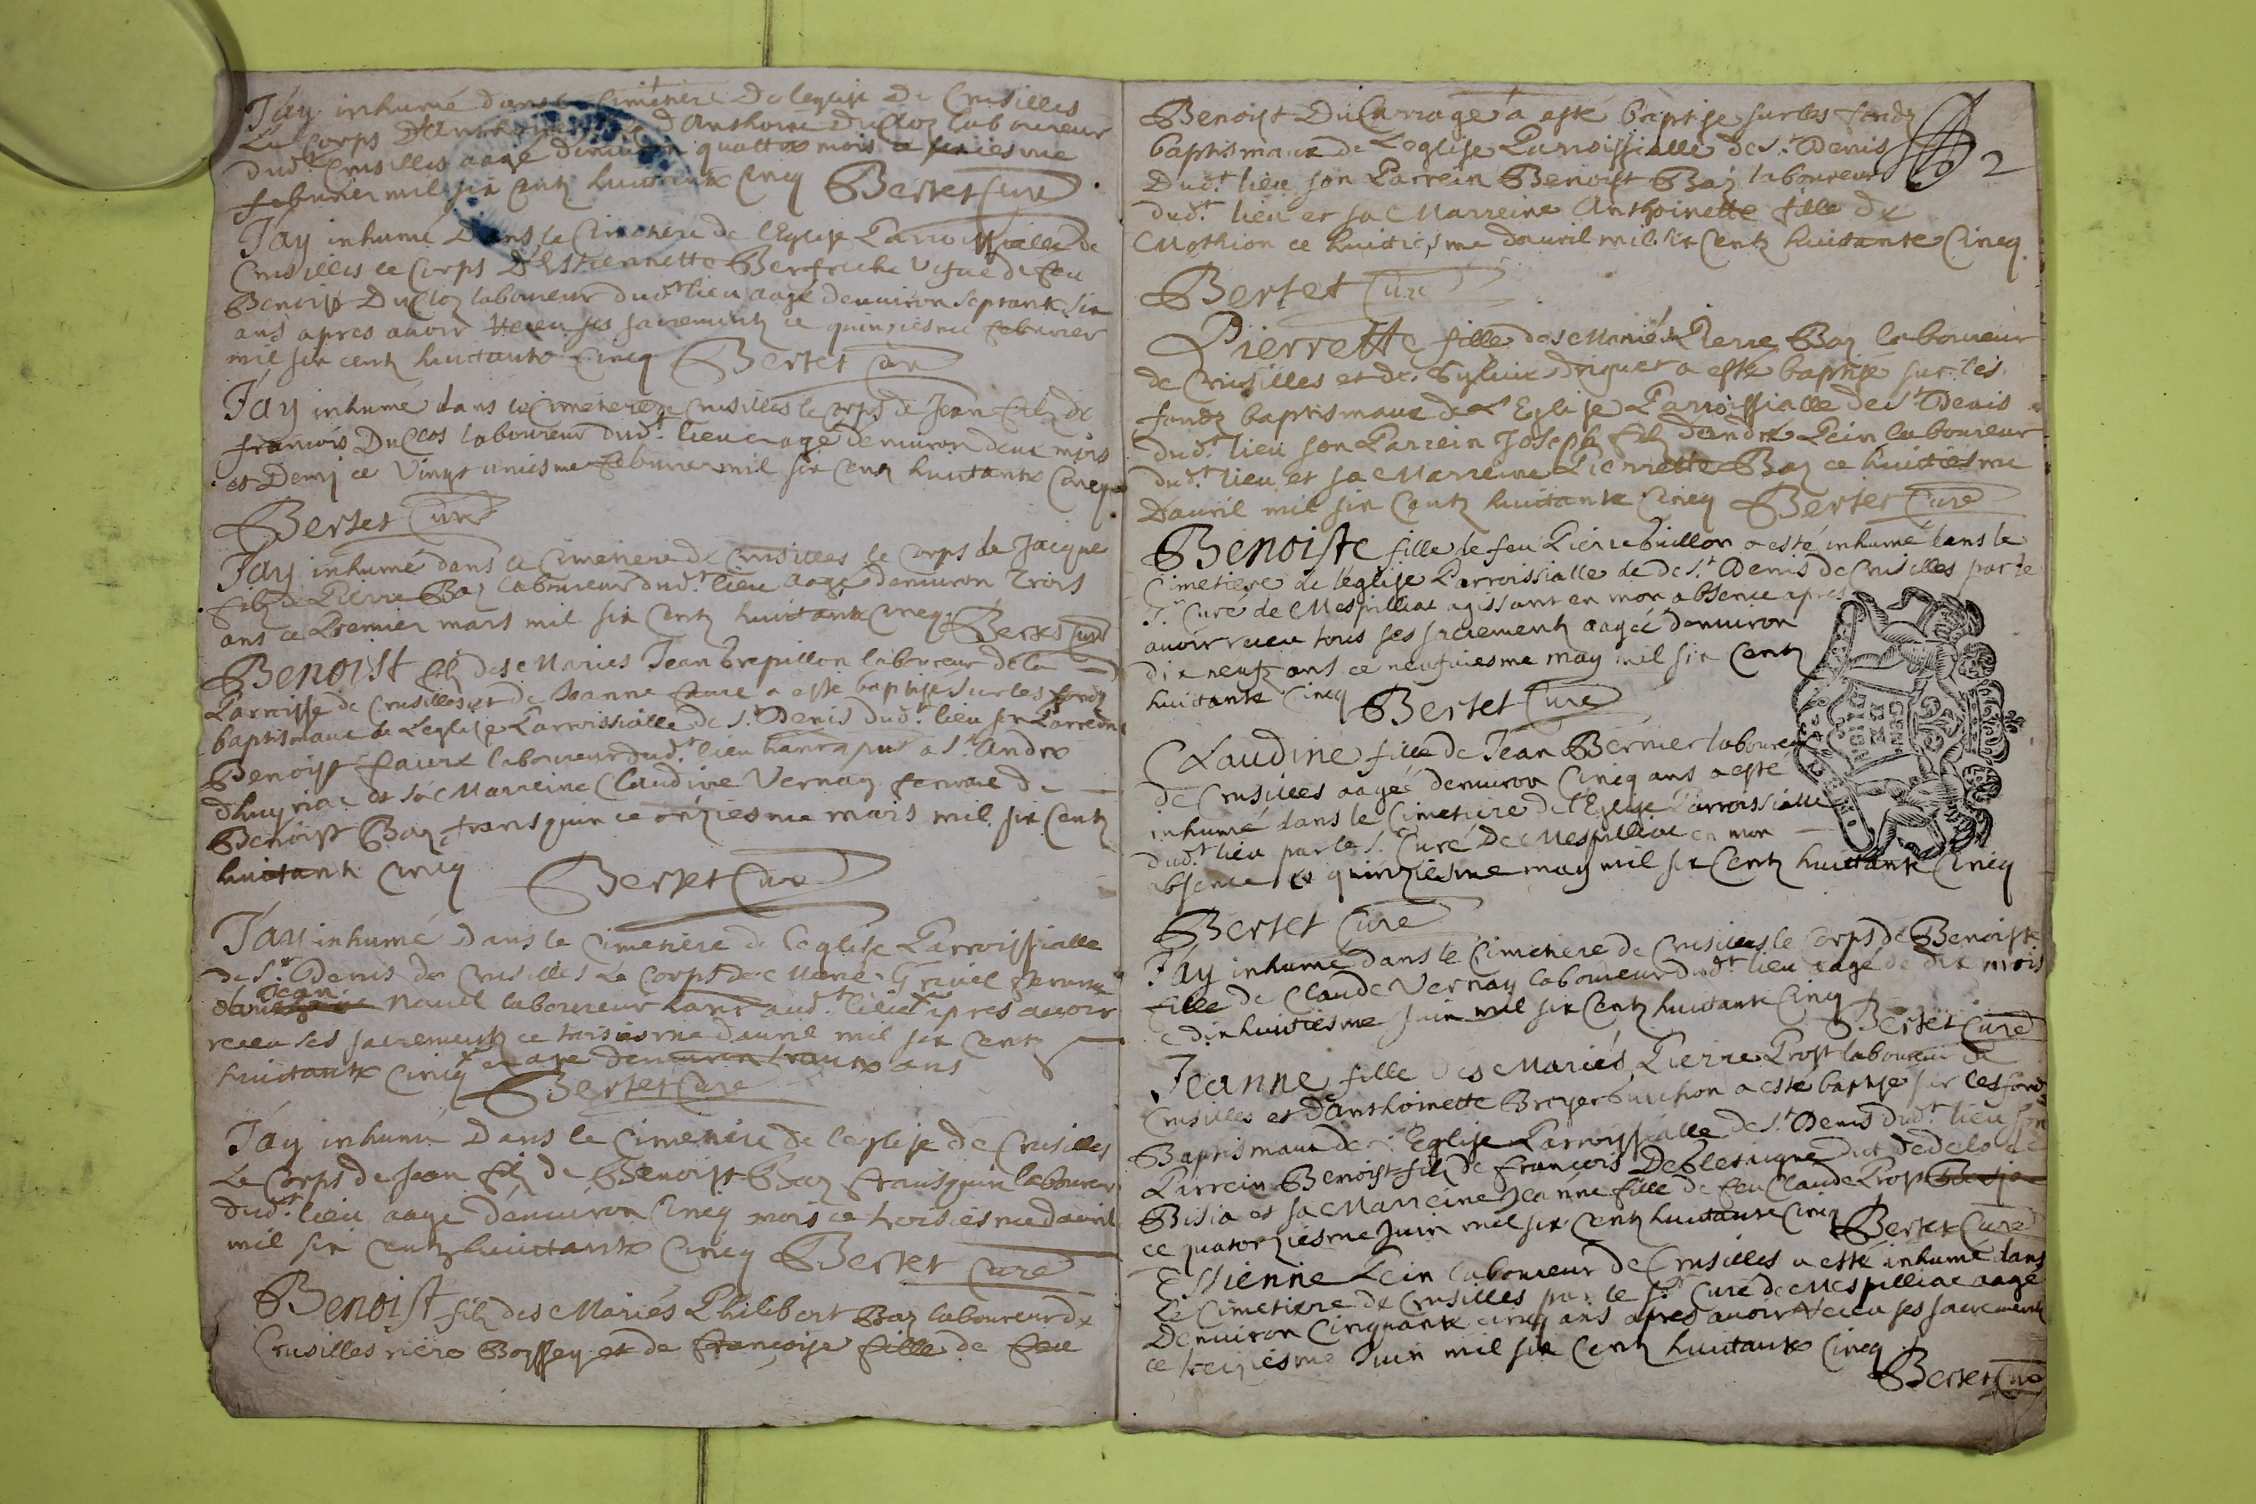 Jay inhumé dans le Cimetiere De leglise De Crusilles
Le Corps d'Anthoine Duclos laboureur
dud.t Crusilles aagé denuiron quattre mois ce
febvrier mil six Centz huictante Cinq Bertet Curé
Jay inhumé Dans le Cimetiere de l'Eglise Parroissialle de
Crusilles le Corps D'Estiennette vefue de feu
Benoist Duclos laboureur dud.t lieu aagé denuiron septante six
ans apres avoir receu ses sacrementz ce quinziesme febvrier
mil six centz huictante Cinq Bertet Curé
Jay inhumé dans le Cimetiere de Crusilles le Corps de Jean filz de
francois Duclos laboureur dud.t lieu aagé denuiron deux mois
et Demy ce Vingt uniesme febvrier mil six Centz huictante Cinq
Bertet Curé
Jay inhumé dans le Cimetiere de Crusilles le Corps de Jacque
filz de Pierre Baz laboureur dud.t lieu aagé denuiron Trois
ans ce premier mars mil six Centz huictante Cinq Bertet Curé
Benoist filz des Mariés Jean laboureur de la
Parroisse de Crusilles et de Jeanne faure a esté baptisé sur les fondz
baptismaux de l'eglise Parroissialle de S.t Denis dud.t lieu son Parrein
Benoist faure laboureur dud.t lieu a S.t André
et sa Marreine Claudine Vernay femme de
Benoist Baz fransquin ce onziesme mars mil six Centz
huictante Cinq Bertet Curé
Jay inhumé Dans le Cimetiere de leglise Parroissialle
de S.t Denis de Crusilles Le Corps de Marie femme
Jean
laboureur aud.t lieu apres avoir
receu ses sacrementz ce troisiesme d'avril mil six Centz
huictante Cinq aagé denuiron ans
Bertet Curé
Jay inhumé Dans le Cimetiere de leglise de Crusilles
Le Corps de Jean filz de Benoist Baz fransquin laboureur
dud.t lieu aagé denuiron Cinq mois ce troisiesme davril
mil six Centz huictante Cinq Bertet Curé
Benoist filz des Mariés Philibert Baz laboureur de
Crusilles riere Boissey et de francoise fille de feu
Benoist Ducarrage a esté baptisé sur les fondz
baptismaux de L'eglise Parroissialle de S.t Denis 2
Dud.t lieu son Parrein Benoist Baz laboureur
dud.t lieu et sa Marreine Anthoinette fille de
Mothion ce huictiesme davril mil six Centz huictante Cinq
Bertet Curé
Pierrette fille des Mariés Pierre Baz laboureur
de Crusilles et de a esté baptisé sur les
fondz baptismaux de L'Eglise Parroissialle de S.t Denis
dud.t lieu son Parrein Joseph filz d'andré Pein laboureur
dud.t lieu et sa Marreine Pierrette Baz ce huictiesme
d'avril mil six Centz huictante Cinq Bertet Curé
Benoiste fille de feu Pierre buillon a esté inhumé dans le
Cimetiere de leglise Parroissialle de de S.t Denis de Crusilles par le
S.r Curé de Mespilliat agissant en mon absence apres
avoir receu tous ses sacrementz aagée denuiron
dix neufz ans ce neufuiesme may mil six Centz
huictante Cinq Bertet Curé
Claudine fille de Jean Bernier laboureur
de Crusilles aagée denuiron Cinq ans a esté
inhumé dans le Cimetiere de l'Eglise Parroissialle
dud.t lieu par le S.r Curé De Mespilliat en mon
absence ce quinziesme may mil six Centz huictante Cinq
Bertet Curé
Jay inhumé dans le Cimetiere de Crusilles le Corps de Benoiste
fille de Claude Vernay laboureur dud.t lieu aagé de dix mois
ce dixhuictiesme Juin mil six Centz huictante Cinq
Bertet Curé
Jeanne fille des Mariés Pierre Prost laboureur de
Crusilles et d'Anthoinette a esté baptisé sur les fondz
Baptismaux de l'Eglise Parroissialle de S.t Denis dud.t lieu son
Parrein Benoist filz de francois dit
et sa Marreine Jeanne fille de feu Claude Prost
ce quatorziesme Juin mil six Centz huictante Cinq Bertet Curé
Estienne Pein laboureur de Crusilles a esté inhumé dans
Le Cimetiere de Crusilles par le S.r Curé de Mespilliat aagé
Denuiron Cinquante cinq ans apres avoir receu ses sacrementz
ce treiziesme Juin mil six Centz huictante Cinq
Bertet Curé